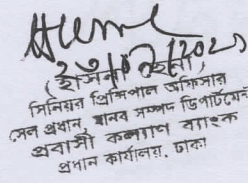 (হাসনা হেনা)
সিনিয়র প্রিন্সিপাল অফিসার
সেল প্রধান, মানব সম্পদ ডিপার্টমেন্ট
প্রবাসী কল্যাণ ব্যাংক
প্রধান কার্যালয়, ঢাকা